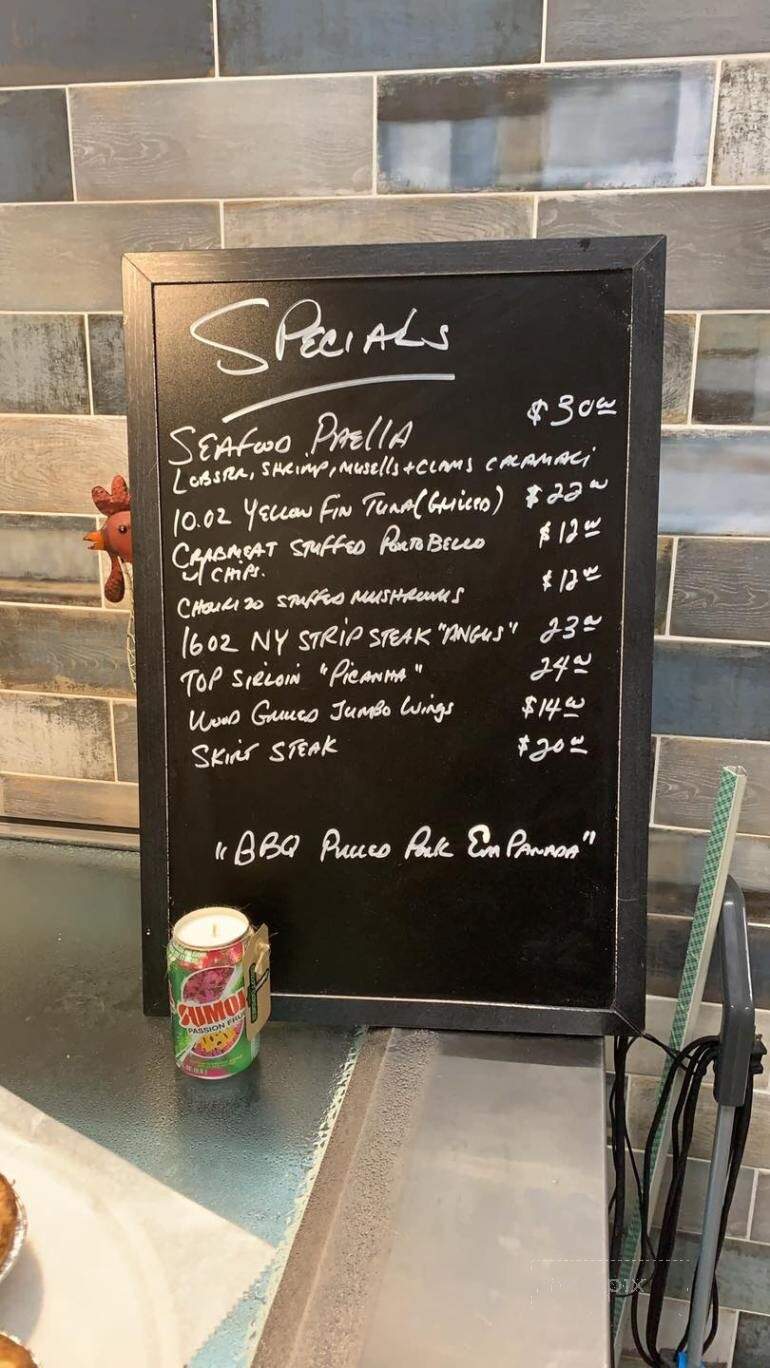 SPECIALS
SEAFOOD PAELLA $30⁰⁰
LOBSTER, SHRIMP, MUSELLS + CLAMS CALAMARI
10.OZ YELLOW FIN TUNA (GRILLED) $22⁰⁰
CRABMEAT STUFFED PORTOBELLO $12⁰⁰
W/ CHIPS.
CHOURIZO STUFFED MUSHROOMS $12⁰⁰
16OZ NY STRIP STEAK "ANGUS" 23⁰⁰
TOP SIRLOIN "PICANHA" 24⁰⁰
WOOD GRILLED JUMBO WINGS $14⁰⁰
SKIRT STEAK $20⁰⁰
"BBQ PULLED PORK EMPANADA"
SUMOL
PASSION FRU